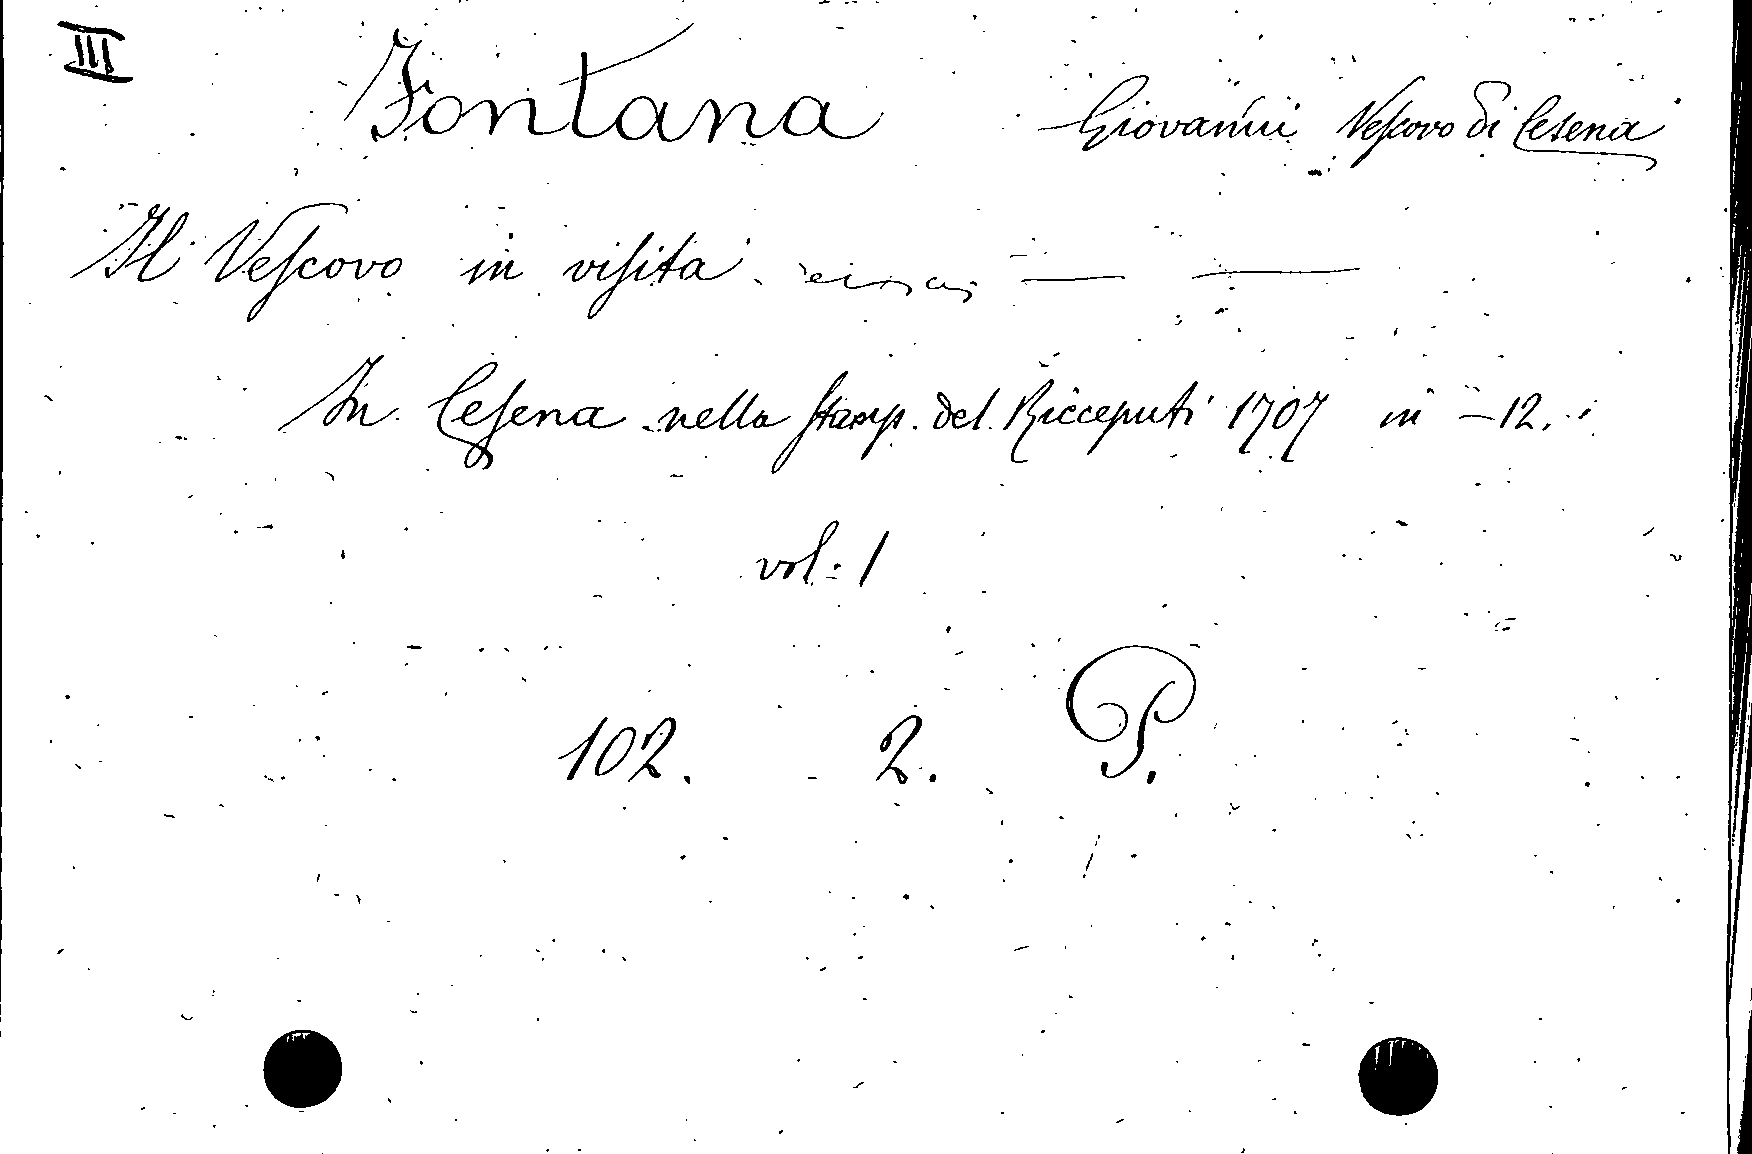 III Fontana Giovanni Vescovo di Cesena
Il Veſcovo in viſita
In Ceſena nella ſtamp. del Ricceputi 1707 in - 12.
vol: 1
102. 2. P.